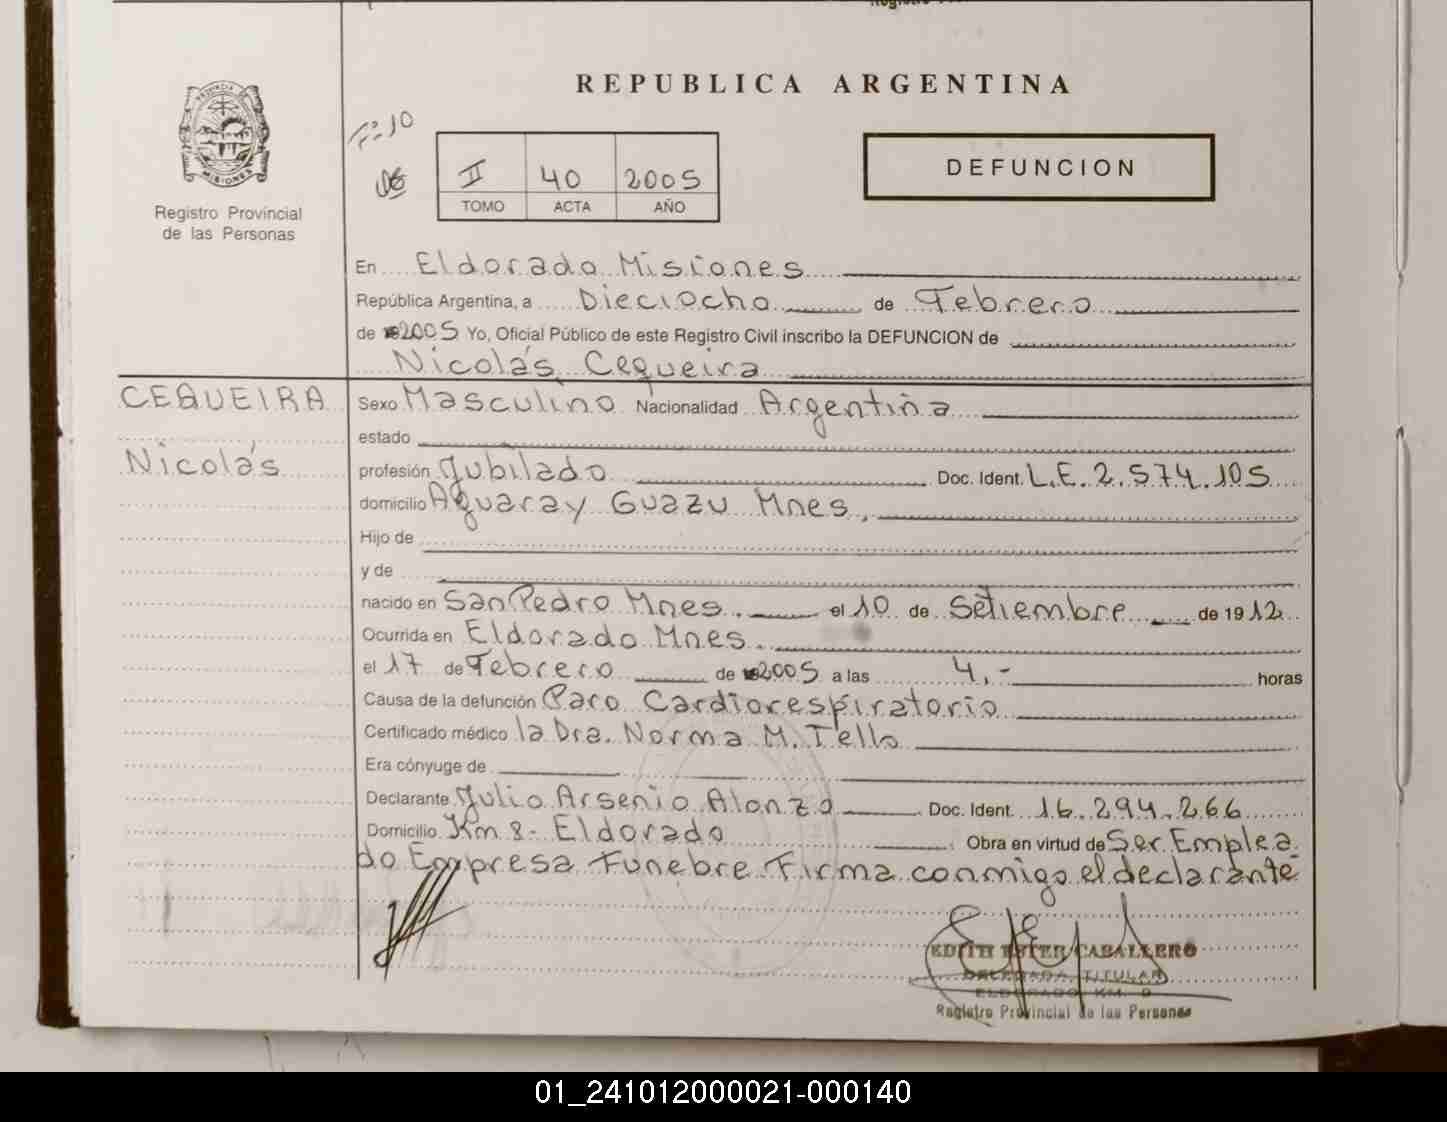 REPUBLICA ARGENTINA
PROVINCIA DE
MISIONES
Registro Provincial
de las Personas
Fº 10
II 40 2005
TOMO ACTA AÑO
DEFUNCION
En Eldorado Misiones
República Argentina, a Dieciocho de Febrero
de 2005 Yo, Oficial Público de este Registro Civil inscribo la DEFUNCION de
Nicolás Cequeira
CEQUEIRA
Nicolás
Sexo Masculino Nacionalidad Argentina
estado
profesión Jubilado Doc. Ident. L.E. 2.574.105
domicilio Aguaray Guazu Mnes,
Hijo de
y de
nacido en San Pedro Mnes. el 10 de Setiembre de 1912
Ocurrida en Eldorado Mnes.
el 17 de Febrero de 2005 a las 4.- horas
Causa de la defunción Paro Cardiorespiratorio
Certificado médico la Dra. Norma M. Tello
Era cónyuge de
Declarante Julio Arsenio Alonzo Doc. Ident. 16.294.266
Domicilio Km 8- Eldorado Obra en virtud de Ser Emplea
do Empresa Funebre Firma conmigo el declarante
EDITH ESTER CABALLERO
DELEGADA TITULAR
ELDORADO KM. 9
Registro Provincial de las Personas
01_241012000021-000140